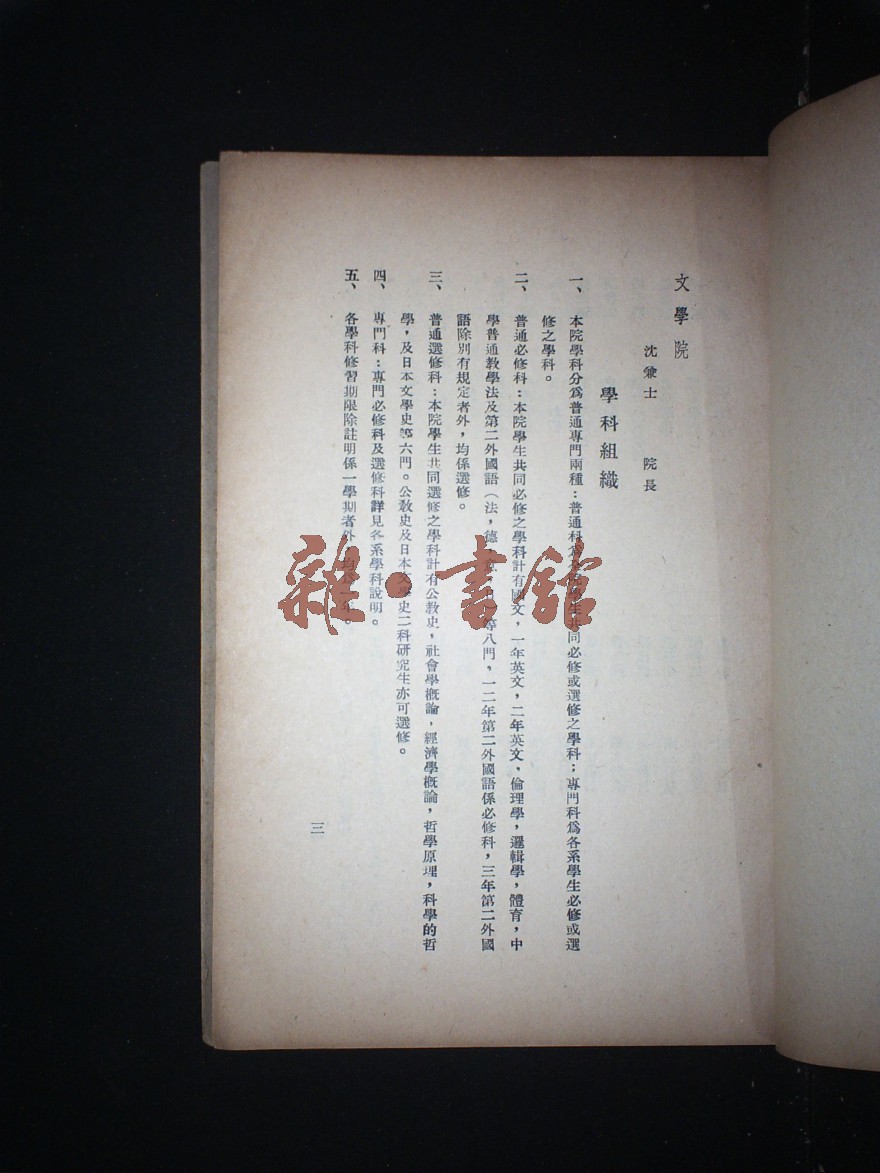 文學院
沈兼士　院長
學科組織
一、本院學科分爲普通專門兩種：普通科爲學生共同必修或選修之學科；專門科爲各系學生必修或選
修之學科。
二、普通必修科：本院學生共同必修之學科計有國文，一年英文，二年英文，倫理學，邏輯學，體育，中
學普通教學法及第二外國語（法，德，等八門，一二年第二外國語係必修科，三年第二外國
語除別有規定者外，均係選修。
三、普通選修科：本院學生共同選修之學科計有公教史，社會學概論，經濟學概論，哲學原理，科學的哲
學，及日本文學史等六門。公敎史及日本文學史二科研究生亦可選修。
四、專門科：專門必修科及選修科詳見各系學科說明。
五、各學科修習期限除註明係一學期者外，年。
三
雜·書館